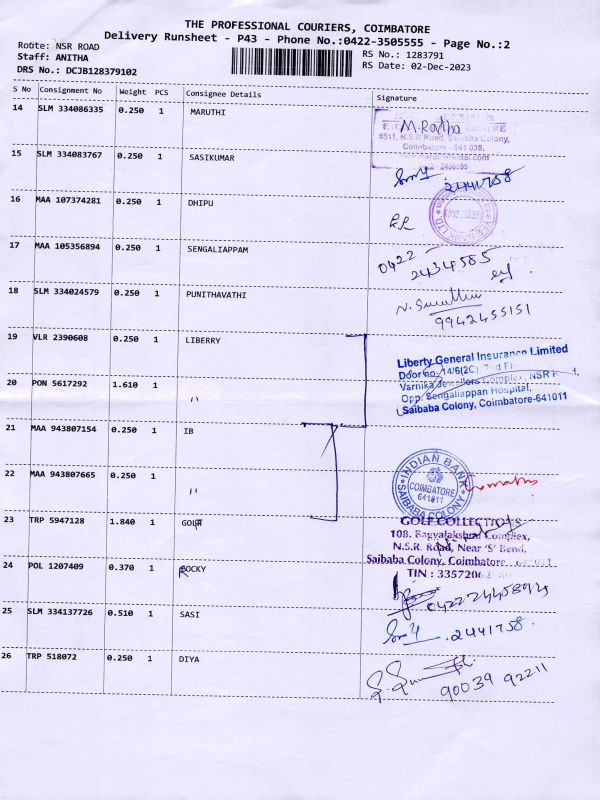 THE PROFESSIONAL COURIERS, COIMBATORE
Delivery Runsheet - P43 - Phone No.:0422-3505555 - Page No.:2
Route: NSR ROAD
RS No.: 1283791
Staff: ANITHA
RS Date: 02-Dec-2023
DRS No.: DCJB128379102
S No Consignment No Weight PCS Consignee Details Signature
14 SLM 334086335 0.250 1 MARUTHI
M. Rajtha
#511, N.S.R Road, Saibaba Colony,
Coimbatore - 641 038.
15 SLM 334083767 0.250 1 SASIKUMAR
2441758
16 MAA 107374281 0.250 1 DHIPU
17 MAA 105356894 0.250 1 SENGALIAPPAM
0422
2434585
18 SLM 334024579 0.250 1 PUNITHAVATHI
9942455151
19 VLR 2390608 0.250 1 LIBERRY
Liberty General Insurance Limited
Door no. 14/6(2C)
Varnika Jewellers Complex, NSR
Opp. Sengaliappan Hospital,
Saibaba Colony, Coimbatore-641011
20 PON 5617292 1.610 1 "
21 MAA 943807154 0.250 1 IB
22 MAA 943807665 0.250 1 "
INDIAN BANK
COIMBATORE
641011
SAIBABA COLONY
23 TRP 5947128 1.840 1 GOLF
GOLF COLLECTIONS
108. Bagyalakshmi Complex,
N.S.R. Road, Near 'S' Bend,
Saibaba Colony, Coimbatore
TIN : 33572062
24 POL 1207409 0.370 1 ROCKY
25 SLM 334137726 0.510 1 SASI
2441758
26 TRP 518072 0.250 1 DIYA
90039 92211